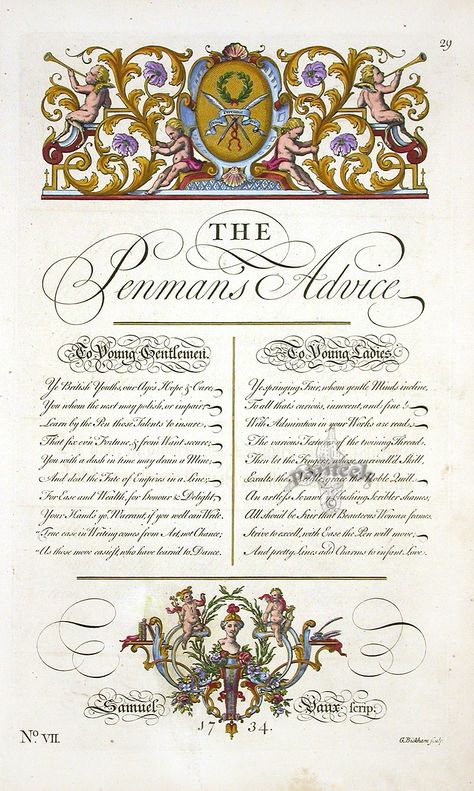 29
THE
Penmans Advice
To Young Gentlemen.
Ye British Youths, our Age's Hope & Care,
You whom the next may polish, or impair;
Learn by the Pen those Talents to insure,
That fix ev'n Fortune, & from Want secure;
You with a dash in time may drain a Mine,
And deal the Fate of Empires in a Line;
For Ease and Wealth, for Honour & Delight,
Your Hand's yr. Warrant, if you well can Write.
True ease in Writing comes from Art, not Chance;
As those move easiest, who have learn'd to Dance.
To Young Ladies
Ye springing Fair, whom gentle Minds incline,
To all that's curious, innocent, and fine!
With Admiration in your Works are read,
The various Textures of the twining Thread.
Then let the Fingers, whose unrivall'd Skill,
Exalts the Needle, grace the Noble Quill.
An artless Scrawl ye blushing Scribler shames;
All shou'd be Fair that Beauteous Woman frames.
Strive to excell, with Ease the Pen will move;
And pretty Lines add Charms to infant Love.
Samuel Vaux scrip:
1734.
No. VII.
G. Bickham sculp.